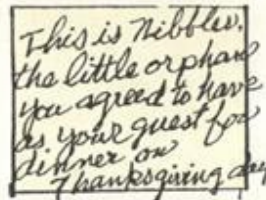 This is Nibbles,
the little orphan
you agreed to have
as your guest for
dinner on
Thanksgiving day